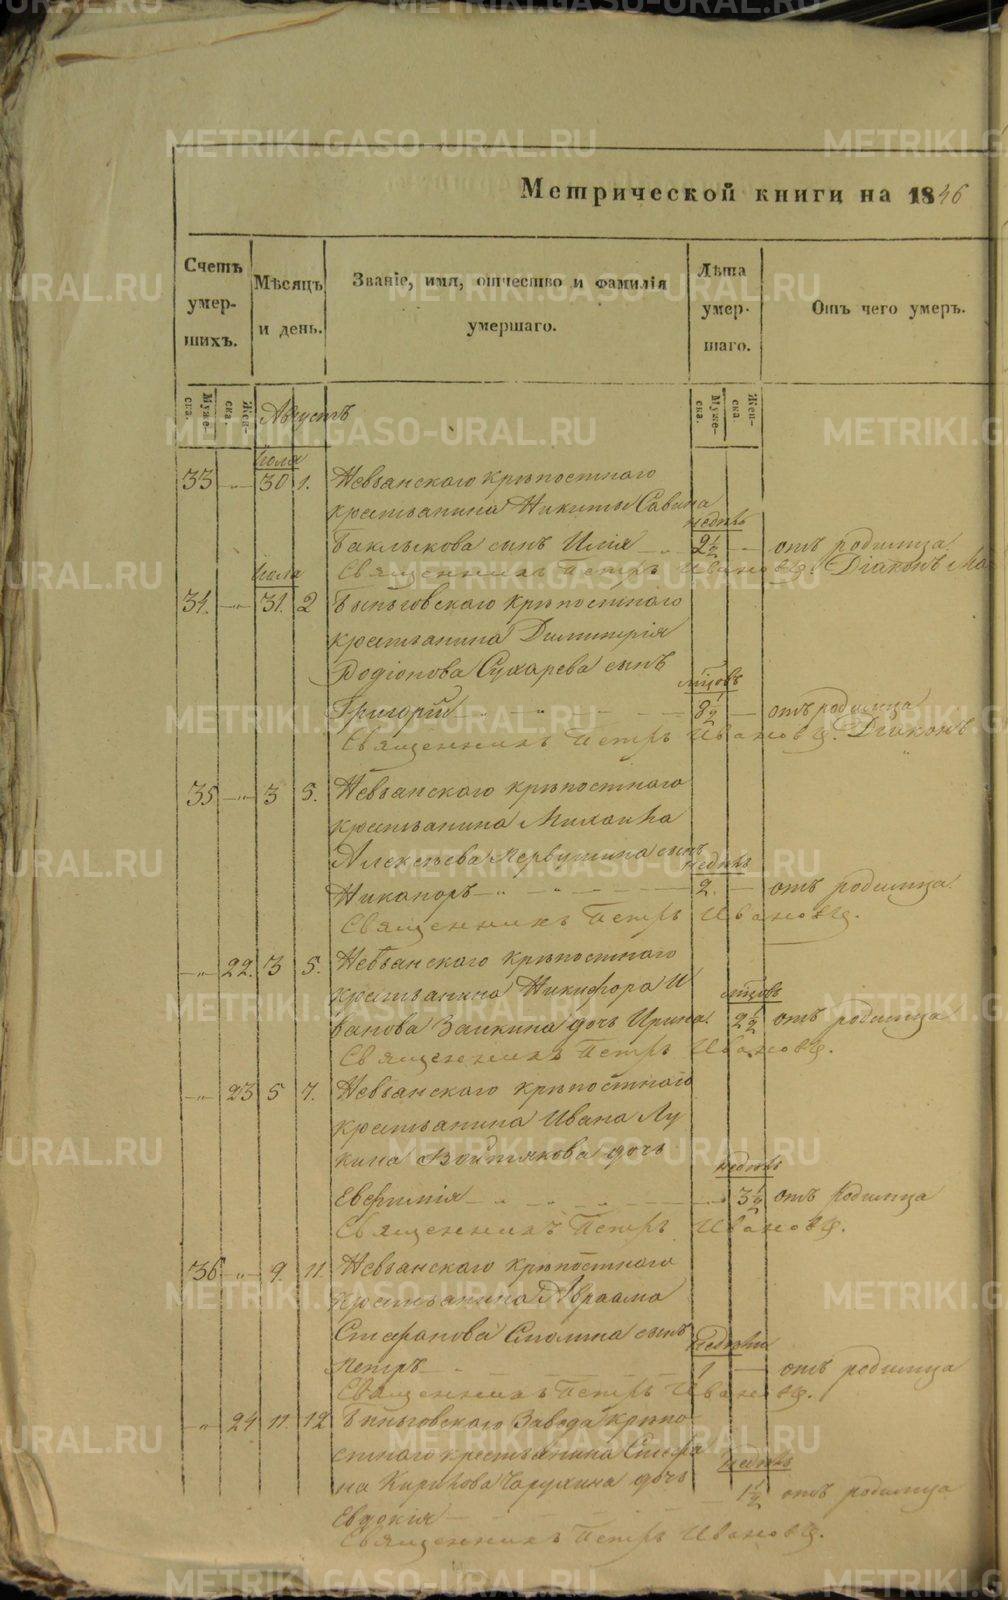 Метрической книги на 1846
Счетъ умер-шихъ.
Мѣсяцъ и день.
Званіе, имя, отчество и фамилія умершаго.
Лѣта умер-шаго.
Отъ чего умеръ.
Муже-ска.
Жен-ска.
Муже-ска.
Жен-ска.
Августъ
Іюля
33 -„- 30 1. Невьянскаго крѣпостнаго
крестьянина Никиты Савина
недѣль
Баклыкова сынъ Илія 2½ — отъ родимца.
Священникъ Петръ Ивановъ. Діаконъ
Іюля
34. -„- 31. 2 Быньговскаго крѣпостнаго
крестьянина Димитрія
Родіонова Сухарева сынъ
мѣсяцовъ
Григорій 8½ — отъ родимца
Священникъ Петръ Ивановъ. Діаконъ
35 -„- 3 5. Невьянскаго крѣпостнаго
крестьянина Михаила
Алексѣева Первушина сынъ
недѣль
Никаноръ 2. — отъ родимца.
Священникъ Петръ Ивановъ.
-„- 22. 3 5. Невьянскаго крѣпостнаго
крестьянина Никифора И
ванова Заикина дочь Ирина. 2½ отъ родимца
Священникъ Петръ Ивановъ.
-„- 23 5 7. Невьянскаго крѣпостнаго
крестьянина Ивана Лу
кина дочь
недѣль
Евфимія 3½ отъ родимца
Священникъ Петръ Ивановъ.
36 -„- 9. 11. Невьянскаго крѣпостнаго
крестьянина Авраама
Стефанова сынъ
недѣли
Петръ 1 — отъ родимца
Священникъ Петръ Ивановъ.
„ 24 11 12 Быньговскаго Завода крѣпо
стнаго крестьянина Стефа
недѣль
на Кирилова дочь
Евдокія 1½ отъ родимца
Священникъ Петръ Ивановъ.
METRIKI.GASO-URAL.RU